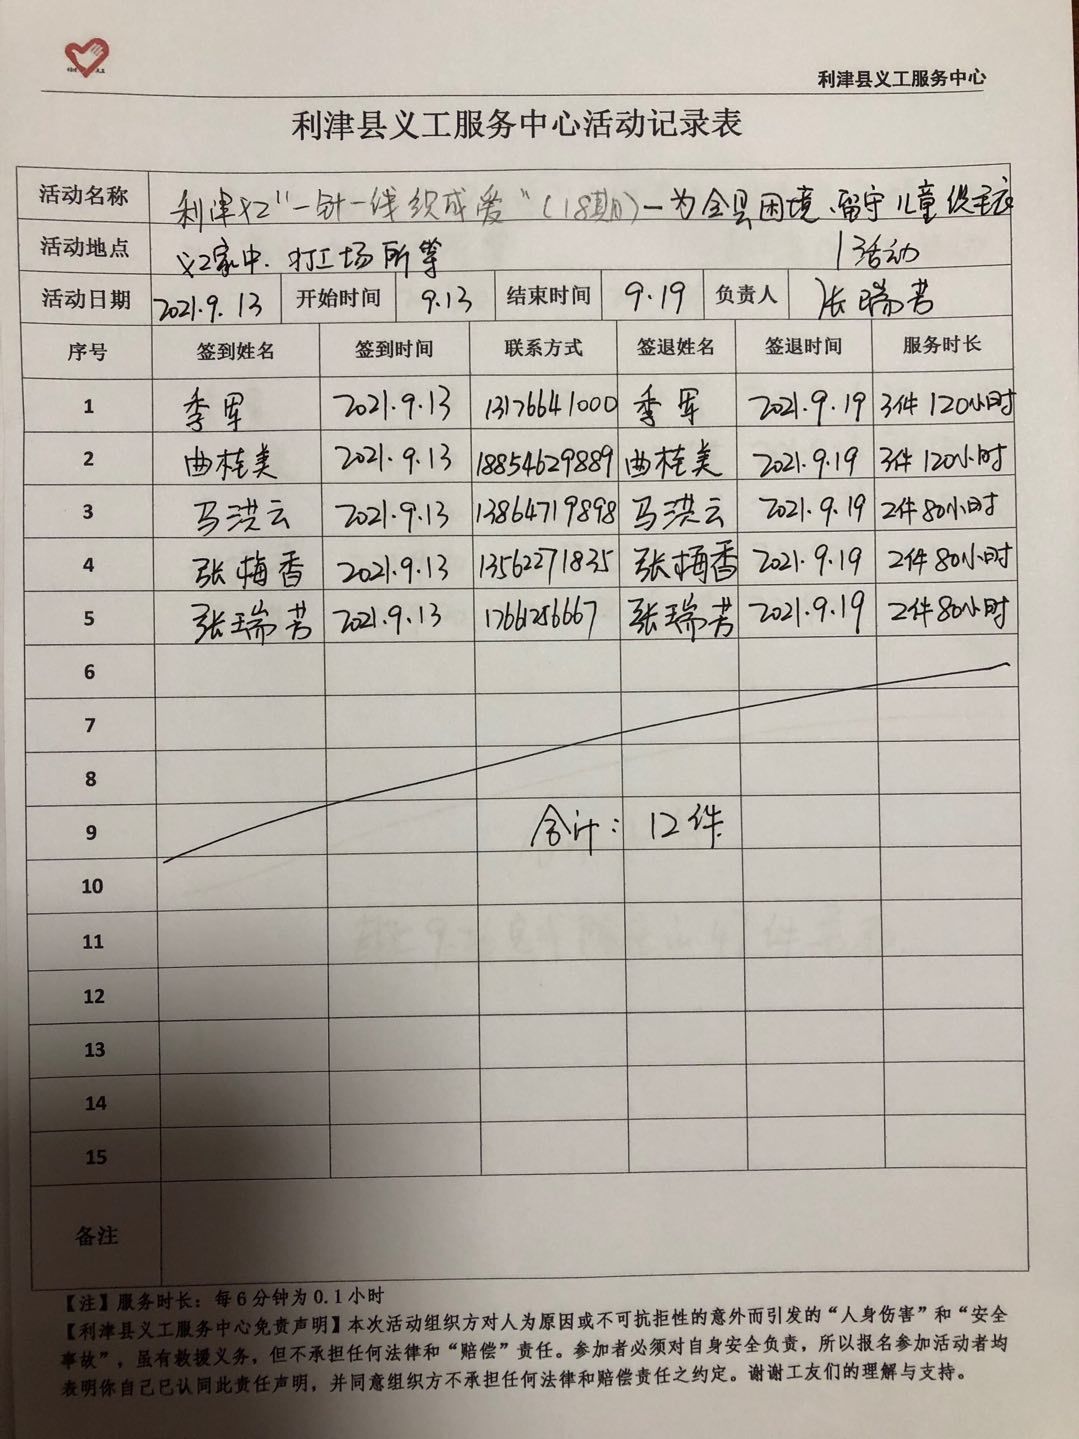 利津县义工服务中心
利津县义工服务中心活动记录表
活动名称 利津义工"一针一线织成爱"(18期)—为全县困境、留守儿童织毛衣
活动地点 义工家中、打工场所等 活动
活动日期 2021.9.13 开始时间 9.13 结束时间 9.19 负责人 张瑞芳
序号 签到姓名 签到时间 联系方式 签退姓名 签退时间 服务时长
1 季军 2021.9.13 13176641000 季军 2021.9.19 3件120小时
2 曲桂美 2021.9.13 18854629889 曲桂美 2021.9.19 3件120小时
3 马洪云 2021.9.13 13864719898 马洪云 2021.9.19 2件80小时
4 张梅香 2021.9.13 13562271835 张梅香 2021.9.19 2件80小时
5 张瑞芳 2021.9.13 17661256667 张瑞芳 2021.9.19 2件80小时
6
7
8
9 合计: 12件
10
11
12
13
14
15
备注
【注】服务时长：每6分钟为0.1小时
【利津县义工服务中心免责声明】本次活动组织方对人为原因或不可抗拒性的意外而引发的“人身伤害”和“安全
事故”，虽有救援义务，但不承担任何法律和“赔偿”责任。参加者必须对自身安全负责，所以报名参加活动者均
表明你自己已认同此责任声明，并同意组织方不承担任何法律和赔偿责任之约定。谢谢工友们的理解与支持。